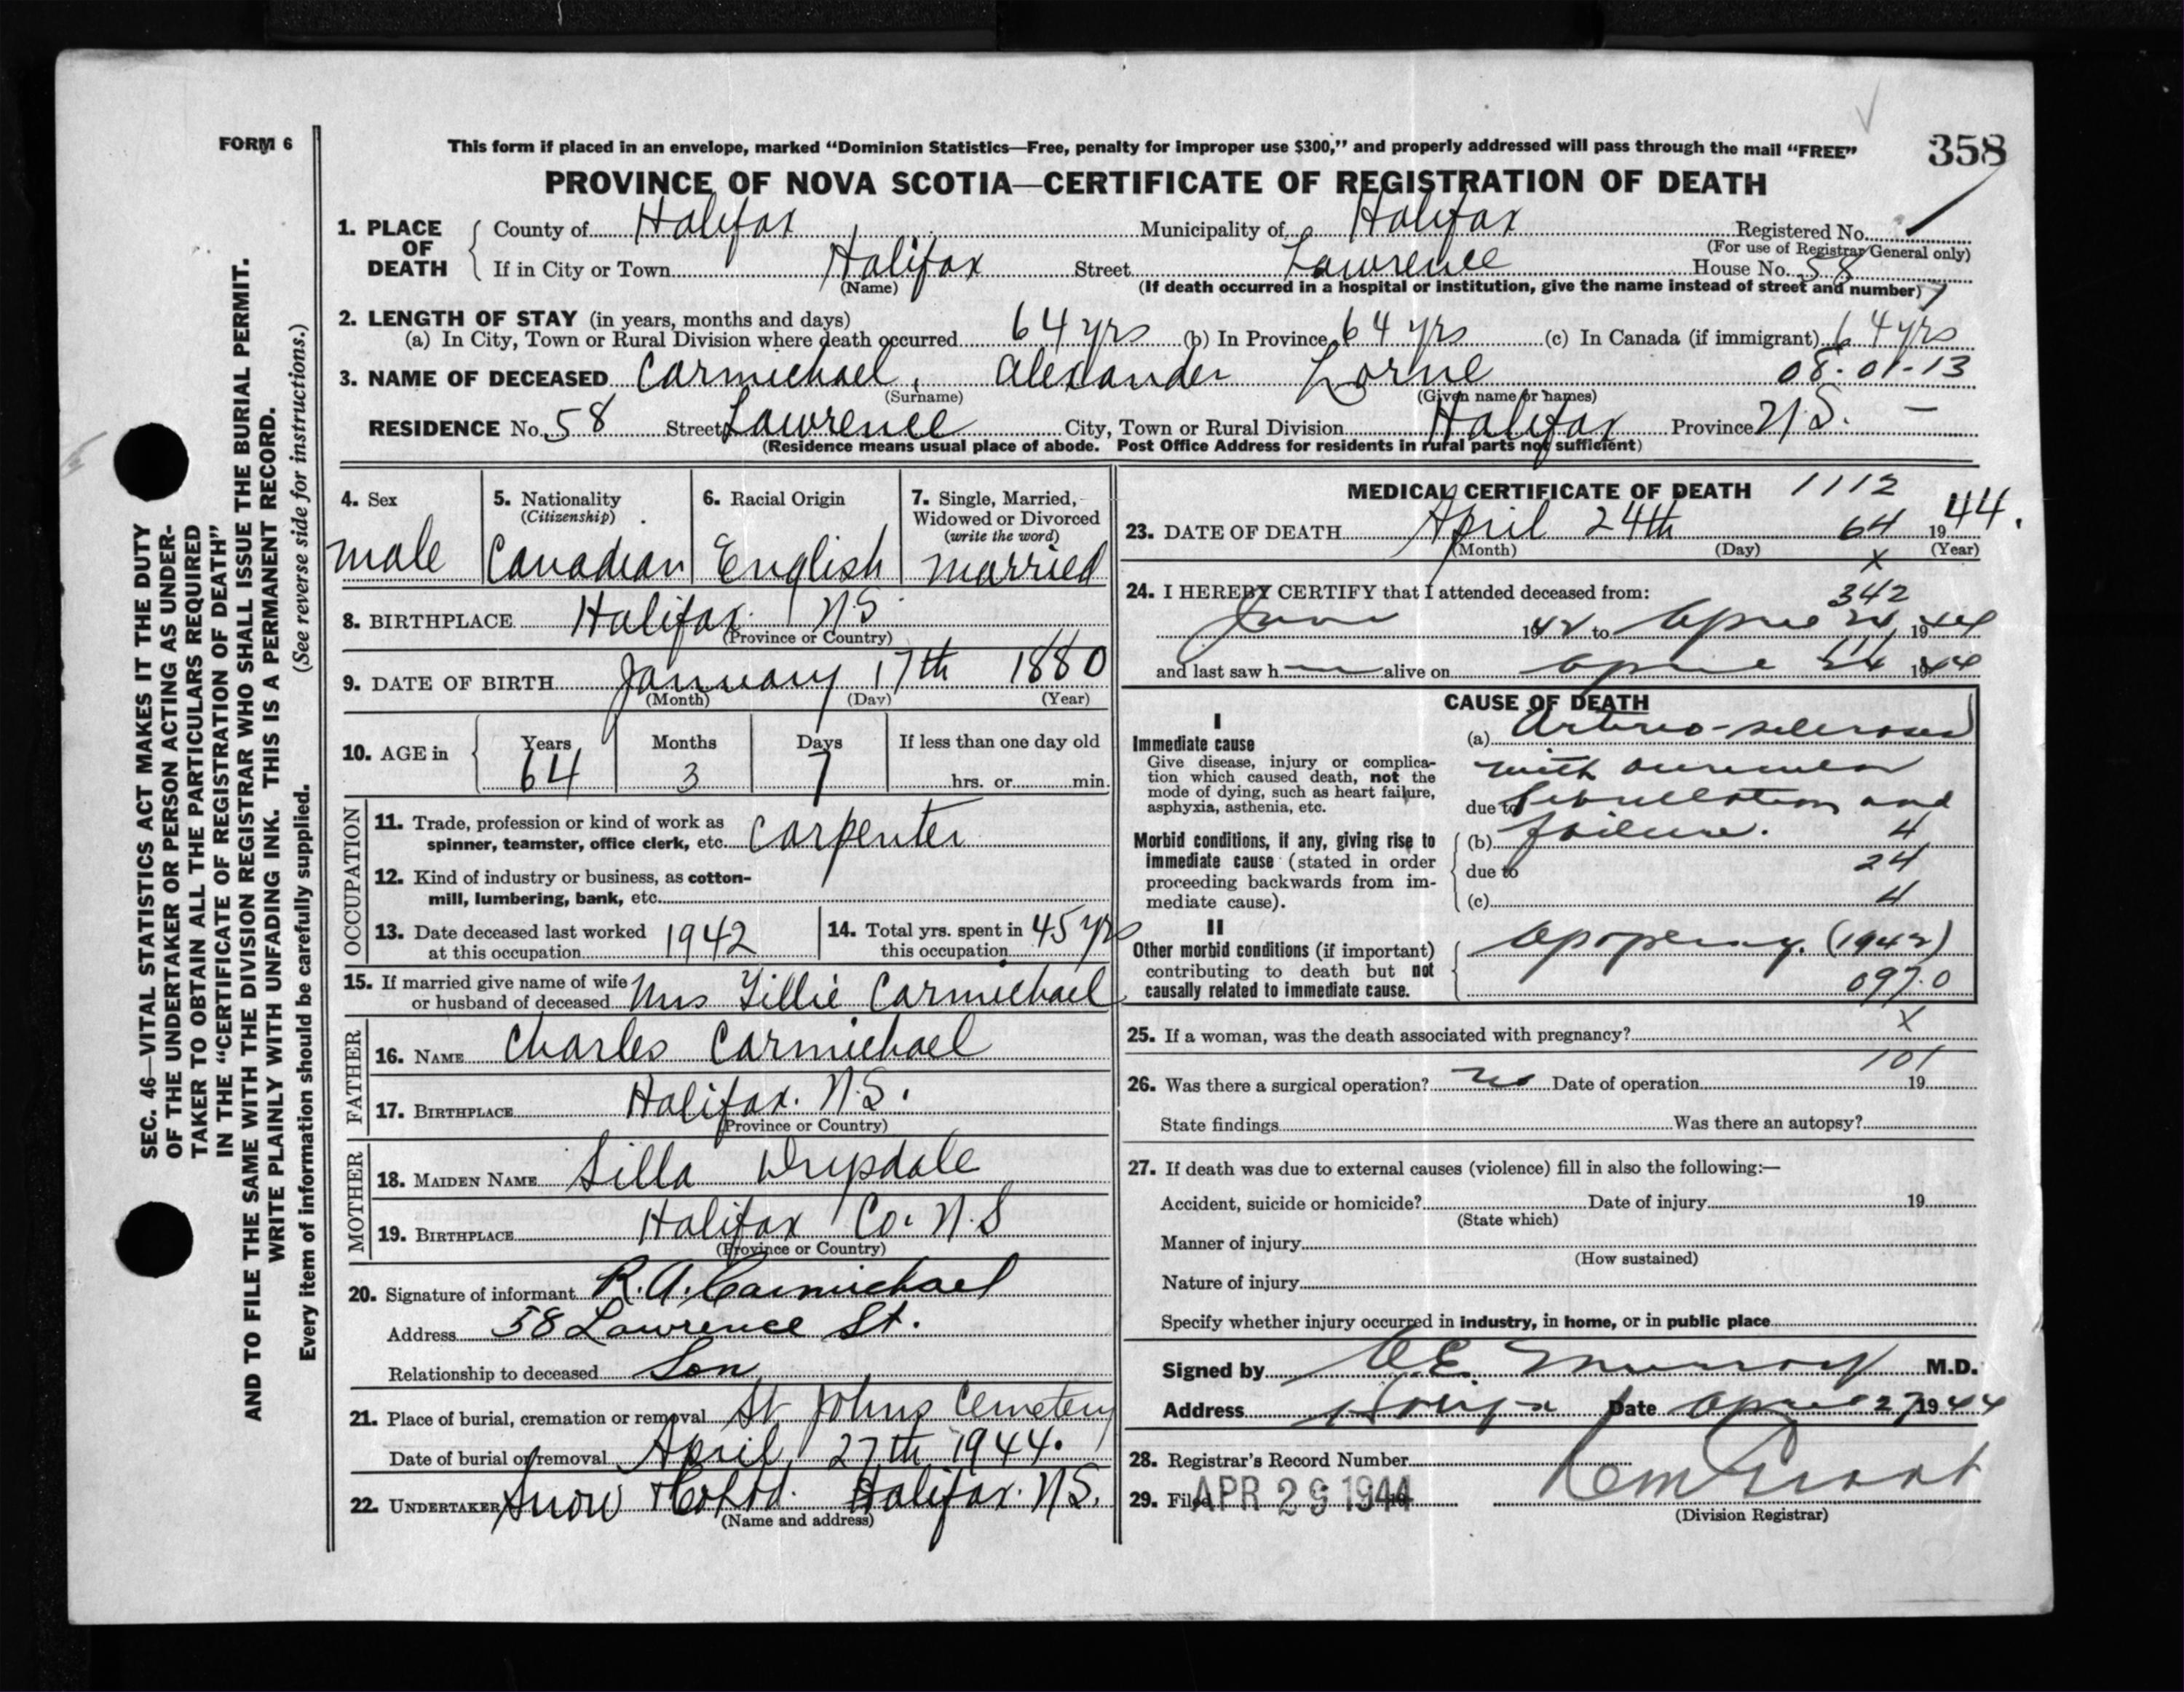 FORM 6
This form if placed in an envelope, marked “Dominion Statistics—Free, penalty for improper use $300,” and properly addressed will pass through the mail “FREE”
358
PROVINCE OF NOVA SCOTIA—CERTIFICATE OF REGISTRATION OF DEATH
1. PLACE OF DEATH
County of Halifax Municipality of Halifax Registered No.
(For use of Registrar General only)
If in City or Town Halifax Street Lawrence House No. 58
(Name) (If death occurred in a hospital or institution, give the name instead of street and number)
2. LENGTH OF STAY (in years, months and days)
(a) In City, Town or Rural Division where death occurred 64 yrs (b) In Province 64 yrs (c) In Canada (if immigrant) 64 yrs
3. NAME OF DECEASED Carmichael, Alexander Lorne 08-01-13
(Surname) (Given name or names)
RESIDENCE No. 58 Street Lawrence City, Town or Rural Division Halifax Province N.S. —
(Residence means usual place of abode. Post Office Address for residents in rural parts not sufficient)
SEC. 46—VITAL STATISTICS ACT MAKES IT THE DUTY
OF THE UNDERTAKER OR PERSON ACTING AS UNDER-
TAKER TO OBTAIN ALL THE PARTICULARS REQUIRED
IN THE “CERTIFICATE OF REGISTRATION OF DEATH”
AND TO FILE THE SAME WITH THE DIVISION REGISTRAR WHO SHALL ISSUE THE BURIAL PERMIT.
WRITE PLAINLY WITH UNFADING INK. THIS IS A PERMANENT RECORD.
Every item of information should be carefully supplied. (See reverse side for instructions.)
4. Sex
male
5. Nationality
(Citizenship)
Canadian
6. Racial Origin
English
7. Single, Married,
Widowed or Divorced
(write the word)
married
8. BIRTHPLACE Halifax N.S.
(Province or Country)
9. DATE OF BIRTH January 17th 1880
(Month) (Day) (Year)
10. AGE in
Years Months Days If less than one day old
64 3 7 hrs. or min.
OCCUPATION
11. Trade, profession or kind of work as
spinner, teamster, office clerk, etc. Carpenter
12. Kind of industry or business, as cotton-
mill, lumbering, bank, etc.
13. Date deceased last worked
at this occupation 1942
14. Total yrs. spent in
this occupation 45 yrs
15. If married give name of wife
or husband of deceased Mrs Lillie Carmichael
FATHER
16. NAME Charles Carmichael
17. BIRTHPLACE Halifax. N.S.
(Province or Country)
MOTHER
18. MAIDEN NAME Silla Drysdale
19. BIRTHPLACE Halifax Co. N.S
(Province or Country)
20. Signature of informant R.A. Carmichael
Address 58 Lawrence St.
Relationship to deceased Son
21. Place of burial, cremation or removal St Johns Cemetery
Date of burial or removal April 27th 1944.
22. UNDERTAKER Snow & Co Ltd. Halifax. N.S.
(Name and address)
MEDICAL CERTIFICATE OF DEATH 1112
23. DATE OF DEATH April 24th 64 1944.
(Month) (Day) (Year)
X
24. I HEREBY CERTIFY that I attended deceased from:
342
June 1942 to April 24 1944
and last saw h alive on April 24 1944
CAUSE OF DEATH
I
Immediate cause
Give disease, injury or complica-
tion which caused death, not the
mode of dying, such as heart failure,
asphyxia, asthenia, etc.
(a) Arterio-sclerosis
with auricular
due to fibrillation and
Morbid conditions, if any, giving rise to
immediate cause (stated in order
proceeding backwards from im-
mediate cause).
(b) failure. 4
due to 24
(c) 4
II
Other morbid conditions (if important)
contributing to death but not
causally related to immediate cause.
Apoplexy. (1942)
097.0
25. If a woman, was the death associated with pregnancy? X
101
26. Was there a surgical operation? no Date of operation 19
State findings Was there an autopsy?
27. If death was due to external causes (violence) fill in also the following:—
Accident, suicide or homicide? Date of injury 19
(State which)
Manner of injury
(How sustained)
Nature of injury
Specify whether injury occurred in industry, in home, or in public place
Signed by Murray M.D.
Address Halifax Date April 27 1944
28. Registrar's Record Number
29. Filed APR 29 1944
(Division Registrar)